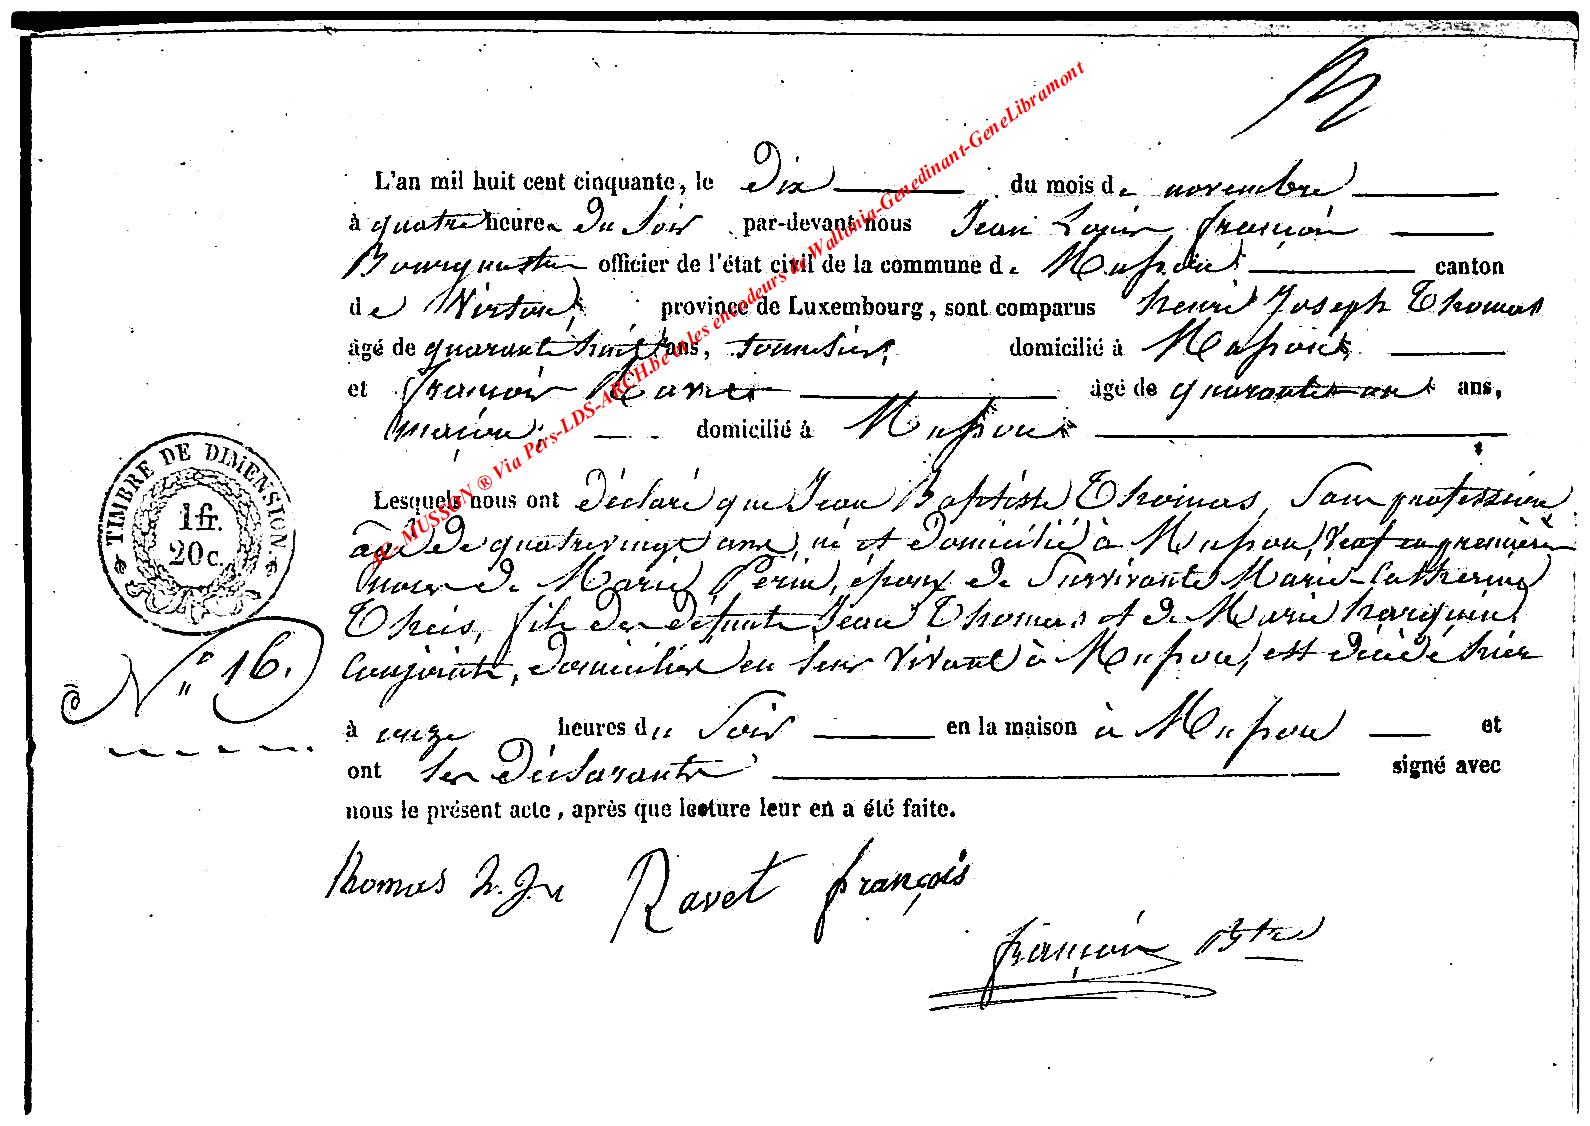 L'an mil huit cent cinquante, le Dix du mois de novembre
à quatre heures du Soir par-devant nous Jean Louis françois
Bourguestre officier de l'état civil de la commune de Musson canton
de Virton, province de Luxembourg, sont comparus henri Joseph Thomas
âgé de quarante huit ans, domicilié à Musson
et françois Ravet âgé de quarante un ans,
maçon, domicilié à Musson
Lesquels nous ont Déclaré que Jean Baptiste Thomas, Sans profession
âgé de quatre vingt ans, né et domicilié à Musson, veuf en première
noce de Marie Perin, époux de Survivante Marie-Catherine
Theis, fils des défunts Jean Thomas et de Marie harquin
Conjoints, domiciliés en leur vivant à Musson, est décédé hier
à onze heures du Soir en la maison à Musson et
ont les Déclarants signé avec
nous le présent acte, après que lecture leur en a été faite.
TIMBRE DE DIMENSION.
1 fr.
20 c.
N° 16.
Thomas h. J.
Ravet françois
françois Bstre
JC- MUSSON ® Via Pers-LDS-ARCH.be et les encodeurs de Wallonia-Genedinant-GeneLibramont